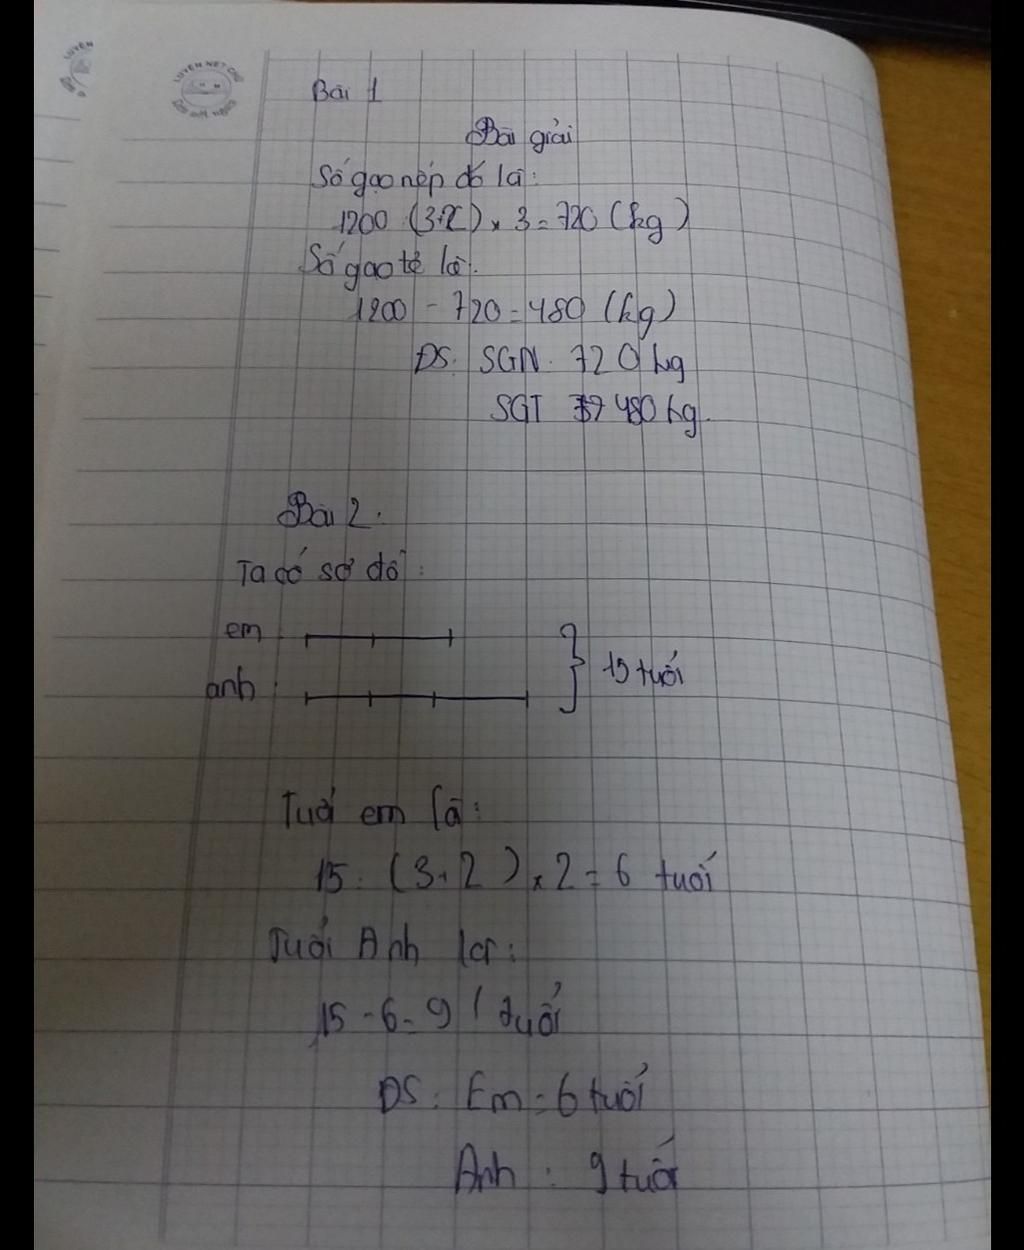 LUYỆN NÉT CHỮ
Bài 1
Bài giải
Số gạo nếp đó là:
1200 : (3+2) x 3 = 720 (kg)
Số gạo tẻ là:
1200 - 720 = 480 (kg)
ĐS: SGN: 720 kg
SGT 480 kg.
Bài 2.
Ta có sơ đồ:
em :
anh :
15 tuổi
Tuổi em là:
15 : (3+2) x 2 = 6 tuổi
Tuổi Anh là:
15 - 6 = 9 ( tuổi
ĐS: Em = 6 tuổi
Anh : 9 tuổi